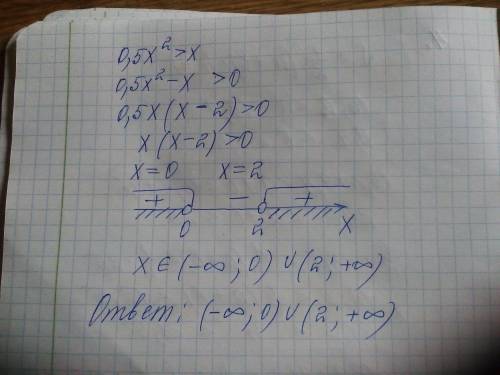 0,5x² > x
0,5x² - x > 0
0,5x(x - 2) > 0
x(x - 2) > 0
x = 0 x = 2
+ - +
0 2 x
x ∈ (-∞; 0) ∪ (2; +∞)
Ответ: (-∞; 0) ∪ (2; +∞)